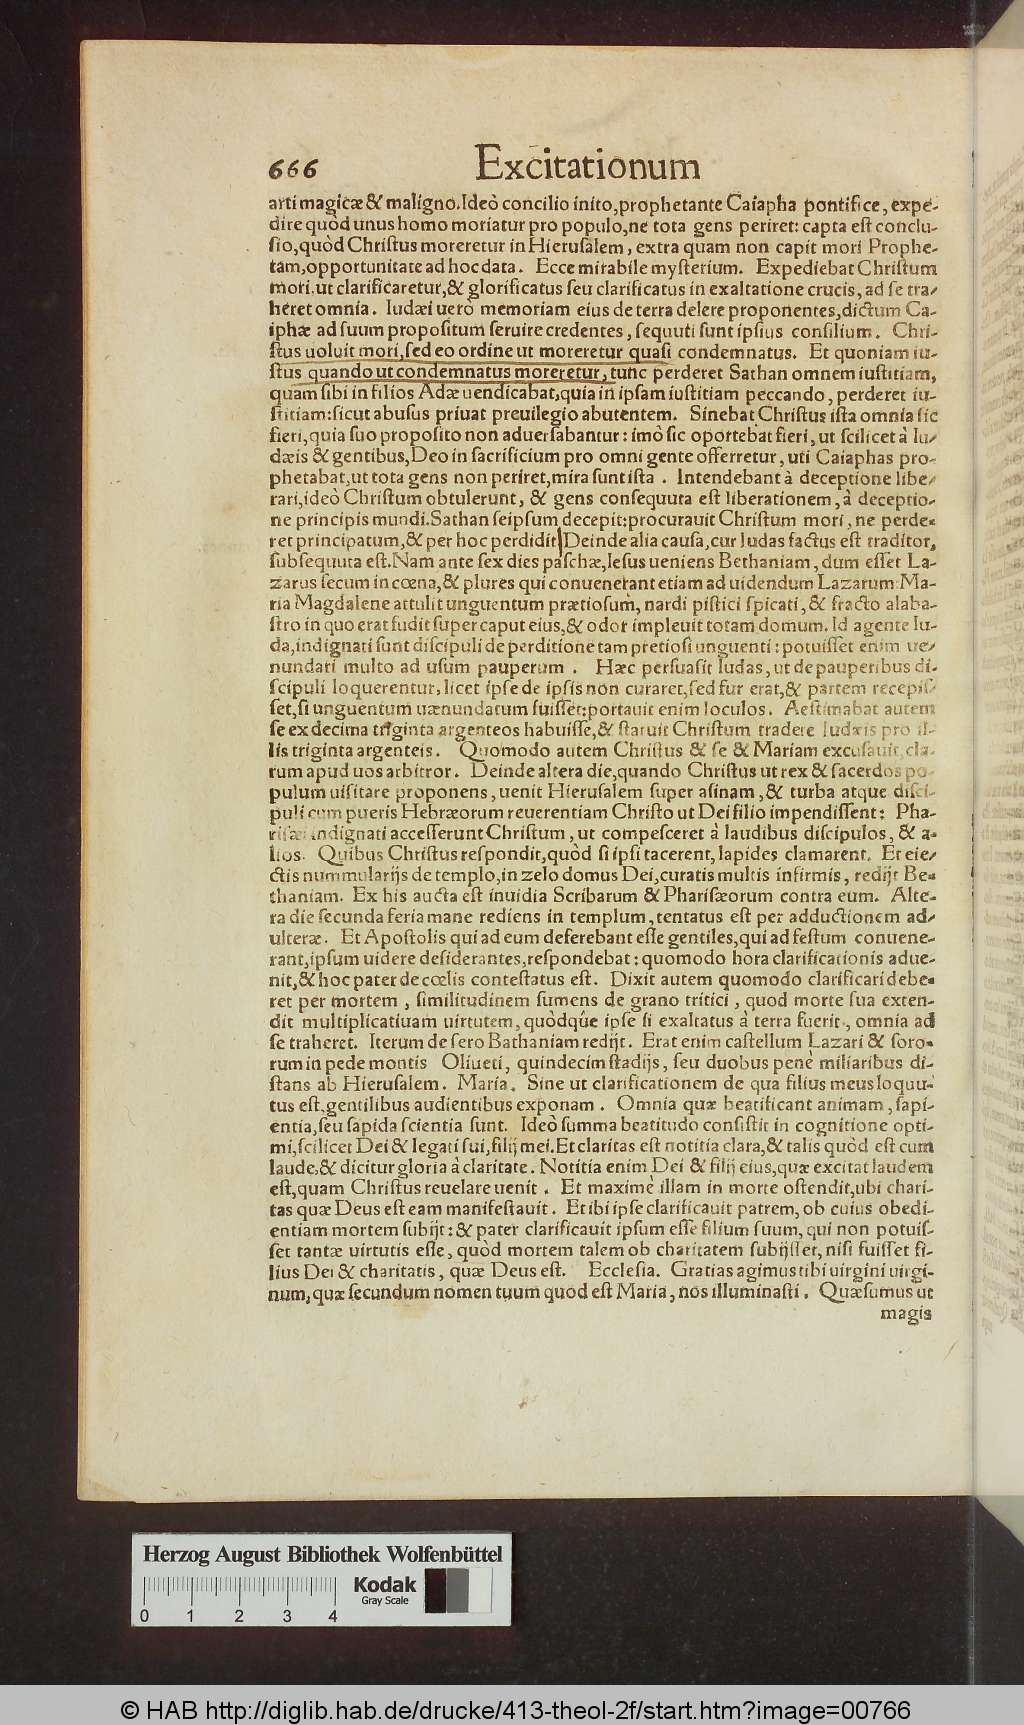 666 Excitationum
arti magicæ & maligno. Ideò concilio inito, prophetante Caiapha pontifice, expe-
dire quòd unus homo moriatur pro populo, ne tota gens periret: capta est conclu-
sio, quòd Christus moreretur in Hierusalem, extra quam non capit mori Prophe-
tam, opportunitate ad hoc data. Ecce mirabile mysterium. Expediebat Christum
mori, ut clarificaretur, & glorificatus seu clarificatus in exaltatione crucis, ad se tra-
heret omnia. Iudæi uerò memoriam eius de terra delere proponentes, dictum Ca-
iphæ ad suum propositum seruire credentes, sequuti sunt ipsius consilium. Chri-
stus uoluit mori, sed eo ordine ut moreretur quasi condemnatus. Et quoniam iu-
stus quando ut condemnatus moreretur, tunc perderet Sathan omnem iustitiam,
quam sibi in filios Adæ uendicabat, quia in ipsam iustitiam peccando, perderet iu-
stitiam: sicut abusus priuat preuilegio abutentem. Sinebat Christus ista omnia sic
fieri, quia suo proposito non aduersabantur: imò sic oportebat fieri, ut scilicet à Iu-
dæis & gentibus, Deo in sacrificium pro omni gente offerretur, uti Caiaphas pro-
phetabat, ut tota gens non periret, mira sunt ista. Intendebant à deceptione libe-
rari, ideò Christum obtulerunt, & gens consequuta est liberationem, à deceptio-
ne principis mundi. Sathan seipsum decepit: procurauit Christum mori, ne perde-
ret principatum, & per hoc perdidit. Deinde alia causa, cur Iudas factus est traditor,
subsequuta est. Nam ante sex dies paschæ, Iesus ueniens Bethaniam, dum esset La-
zarus secum in cœna, & plures qui conuenerant etiam ad uidendum Lazarum: Ma-
ria Magdalene attulit unguentum prætiosum, nardi pistici spicati, & fracto alaba-
stro in quo erat fudit super caput eius, & odor impleuit totam domum. Id agente Iu-
da, indignati sunt discipuli de perditione tam pretiosi unguenti: potuisset enim ue-
nundari multo ad usum pauperum. Hæc persuasit Iudas, ut de pauperibus di-
scipuli loquerentur, licet ipse de ipsis non curaret, sed fur erat, & partem recepis-
set, si unguentum uænundatum fuisset: portauit enim loculos. Aestimabat autem
se ex decima triginta argenteos habuisse, & statuit Christum tradere Iudæis pro il-
lis triginta argenteis. Quomodo autem Christus & se & Mariam excusauit, cla-
rum apud uos arbitror. Deinde altera die, quando Christus ut rex & sacerdos po-
pulum uisitare proponens, uenit Hierusalem super asinam, & turba atque disci-
puli cum pueris Hebræorum reuerentiam Christo ut Dei filio impendissent: Pha-
risæi indignati accesserunt Christum, ut compesceret à laudibus discipulos, & a-
lios. Quibus Christus respondit, quòd si ipsi tacerent, lapides clamarent. Et eie-
ctis nummularijs de templo, in zelo domus Dei, curatis multis infirmis, redijt Be-
thaniam. Ex his aucta est inuidia Scribarum & Pharisæorum contra eum. Alte-
ra die secunda feria mane rediens in templum, tentatus est per adductionem ad-
ulteræ. Et Apostolis qui ad eum deferebant esse gentiles, qui ad festum conuene-
rant, ipsum uidere desiderantes, respondebat: quomodo hora clarificationis adue-
nit, & hoc pater de cœlis contestatus est. Dixit autem quomodo clarificari debe-
ret per mortem, similitudinem sumens de grano tritici, quod morte sua exten-
dit multiplicatiuam uirtutem, quòdq́ue ipse si exaltatus à terra fuerit, omnia ad
se traheret. Iterum de sero Bathaniam redijt. Erat enim castellum Lazari & soro-
rum in pede montis Oliueti, quindecim stadijs, seu duobus penè miliaribus di-
stans ab Hierusalem. Maria. Sine ut clarificationem de qua filius meus loquu-
tus est, gentilibus audientibus exponam. Omnia quæ beatificant animam, sapi-
entia, seu sapida scientia sunt. Ideò summa beatitudo consistit in cognitione opti-
mi, scilicet Dei & legati sui, filij mei. Et claritas est notitia clara, & talis quòd est cum
laude, & dicitur gloria à claritate. Notitia enim Dei & filij eius, quæ excitat laudem
est, quam Christus reuelare uenit. Et maximè illam in morte ostendit, ubi chari-
tas quæ Deus est eam manifestauit. Et ibi ipse clarificauit patrem, ob cuius obedi-
entiam mortem subijt: & pater clarificauit ipsum esse filium suum, qui non potuis-
set tantæ uirtutis esse, quòd mortem talem ob charitatem subijsset, nisi fuisset fi-
lius Dei & charitatis, quæ Deus est. Ecclesia. Gratias agimus tibi uirgini uirgi-
num, quæ secundum nomen tuum quod est Maria, nos illuminasti. Quæsumus ut
magis
Herzog August Bibliothek Wolfenbüttel
Kodak
Gray Scale
0 1 2 3 4
© HAB http://diglib.hab.de/drucke/413-theol-2f/start.htm?image=00766